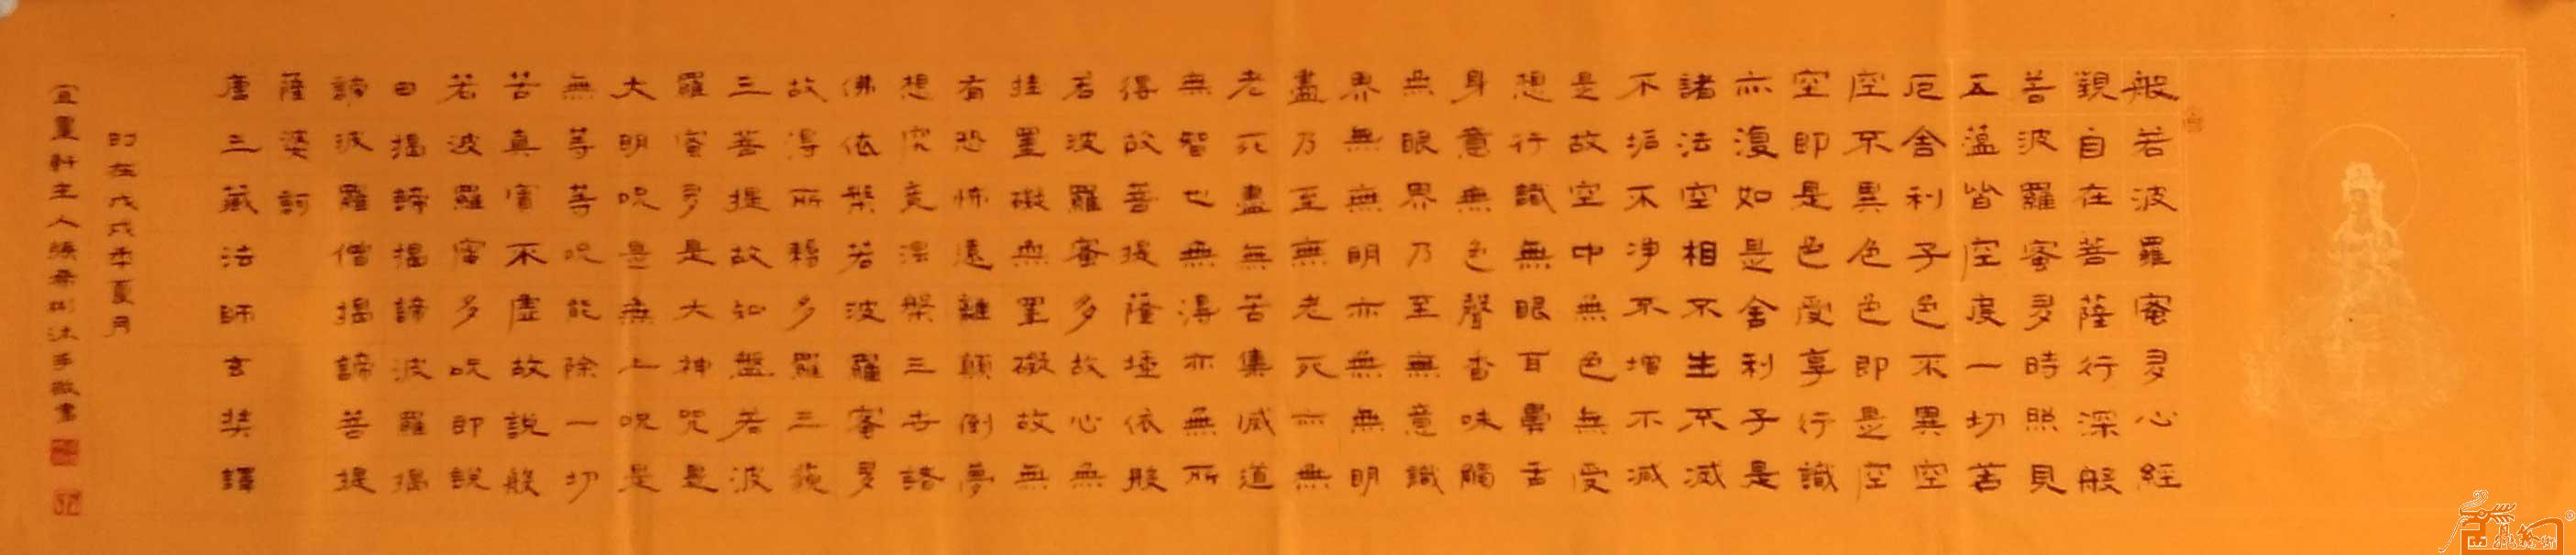 般若波羅蜜多心經
觀自在菩薩行深般
若波羅蜜多時照見
五蘊皆空度一切苦
厄舍利子色不異空
空不異色色即是空
空即是色受享行識
亦復如是舍利子是
諸法空相不生不滅
不垢不净不增不減
是故空中無色無受
想行識無眼耳鼻舌
身意無色聲香味觸
無眼界乃至無意識
界無無明亦無無明
盡乃至無老死亦無
老死盡無苦集滅道
無智也無得亦無所
得故菩提薩埵依般
若波羅蜜多故心無
挂罣礙無罣礙故無
有恐怖遠離顛倒夢
想究竟涅槃三世諸
佛依槃若波羅蜜多
故得所稱多羅三藐
三菩提故知盤若波
羅蜜多是大神咒是
大明咒是無上咒是
無等等咒能除一切
苦真實不虛故說般
若波羅蜜多咒即說
曰揭諦揭諦波羅揭
諦波羅僧揭諦菩提
薩婆訶
唐三藏法師玄奘譯
時在戊戌年夏月
軒主人沐手敬書